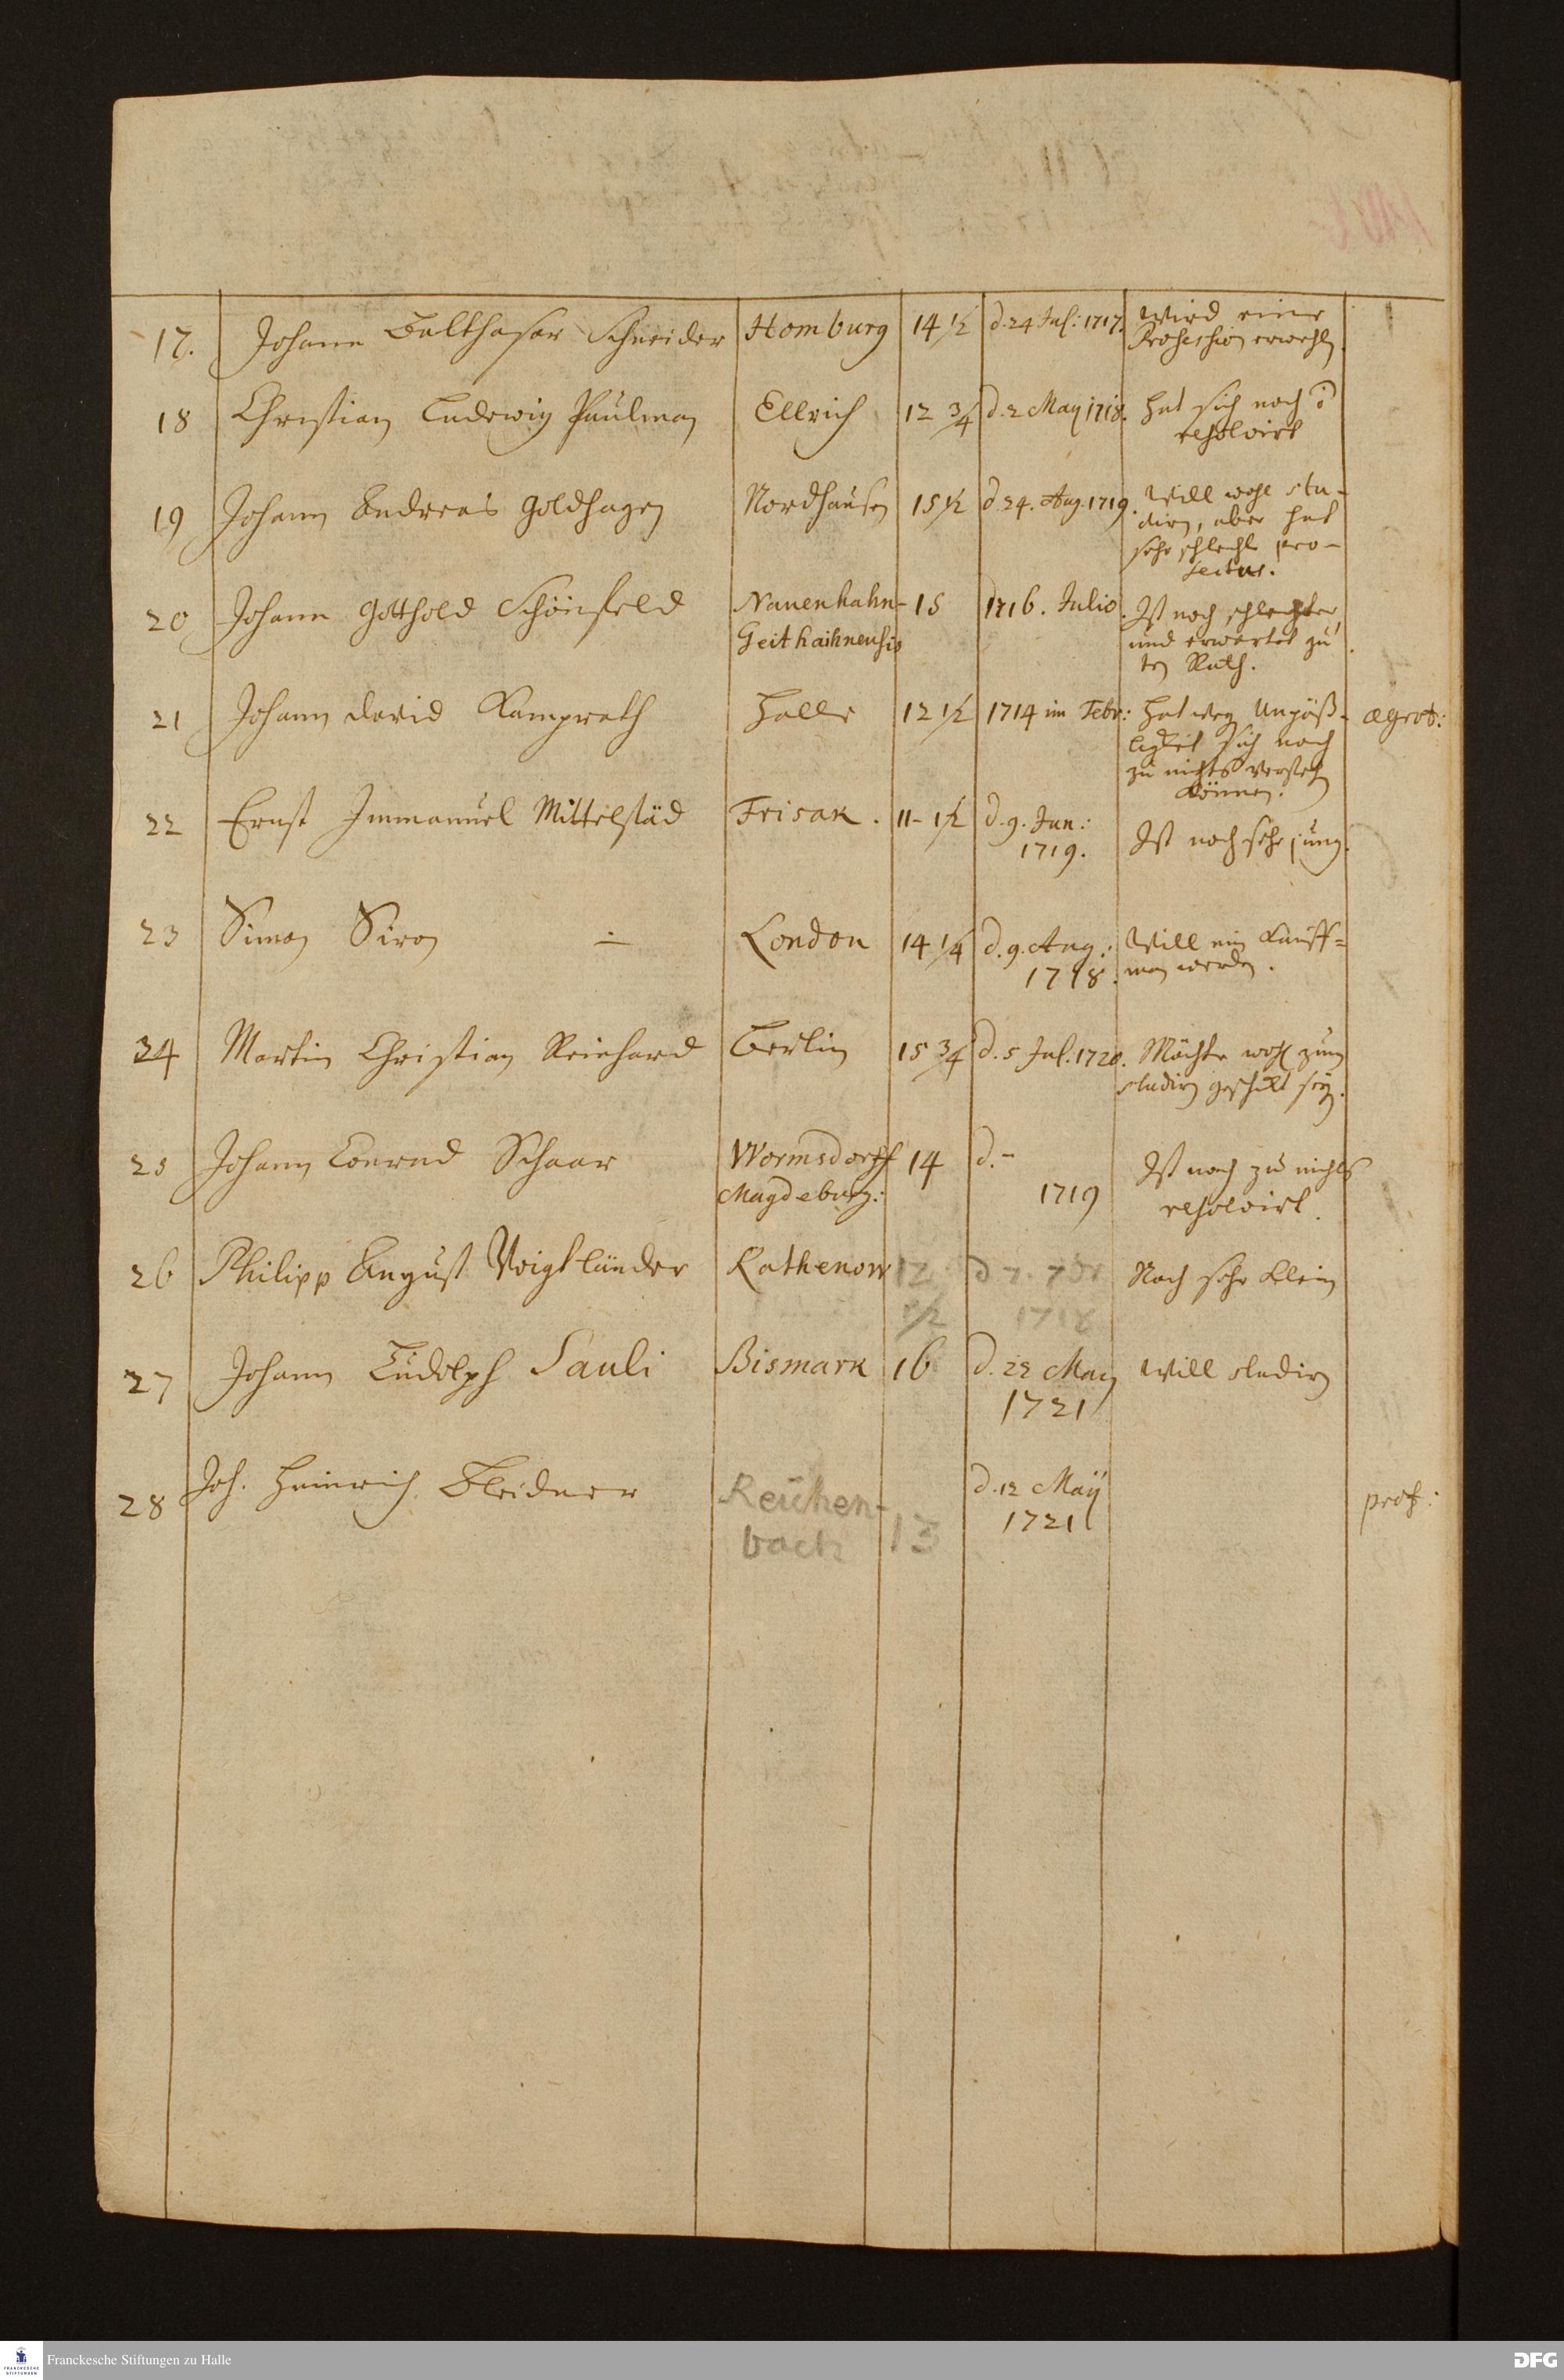 17. Johann Balthasar Schneider Homburg 14 1/2 d. 24 Jul: 1717. Wird eine
Profession erwehln.
18 Christian Ludewig Paulman Ellrich 12 3/4 d. 2 May 1718. hat sich noch
resolvirt
19 Johann Andreas Goldhagen Nordhausen 15 1/2 d. 24. Aug. 1719. Will wohl stu-
diren, aber hat
sehr schlechte pro-
fectus.
20 Johann Gotthold Schönfeld Nauenhahn- 15 1716. Julio. Ist noch schlechter,
Geithaihnensis und erwartet gu-
ten Rath.
21 Johann David Kamprath Halle 12 1/2 1714 im Febr: hat wegen Unpäß- ægrot:
ligkeit sich noch
zu nichts verstehen
können.
22 Ernst Immanuel Mittelstäd Frisak. 11- 1/2 d. 9. Jun:
1719. Ist noch sehr jung.
23 Simon Siron London 14 1/4 d. 9. Aug.: Will ein Kauff-
1718. man werden.
24 Martin Christian Reinhard Berlin 15 3/4 d. 5 Jul. 1720. Möchte wohl zum
studiren geschikt seyn.
25 Johann Conrad Schaar Wormsdorff 14 d. - Ist noch zu nichts
Magdeburg: 1719 resolvirt.
26 Philipp August Voigtländer Rathenow 12 d 7. 7br Noch sehr klein
1/2 1718
27 Johann Ludolph Pauli Bismark 16 d. 22 May Will studiren
1721
28 Joh. Heinrich Bleidner Reichen- d. 12 Maij prof:
bach 13 1721
Franckesche Stiftungen zu Halle
FRANCKESCHE
STIFTUNGEN
DFG